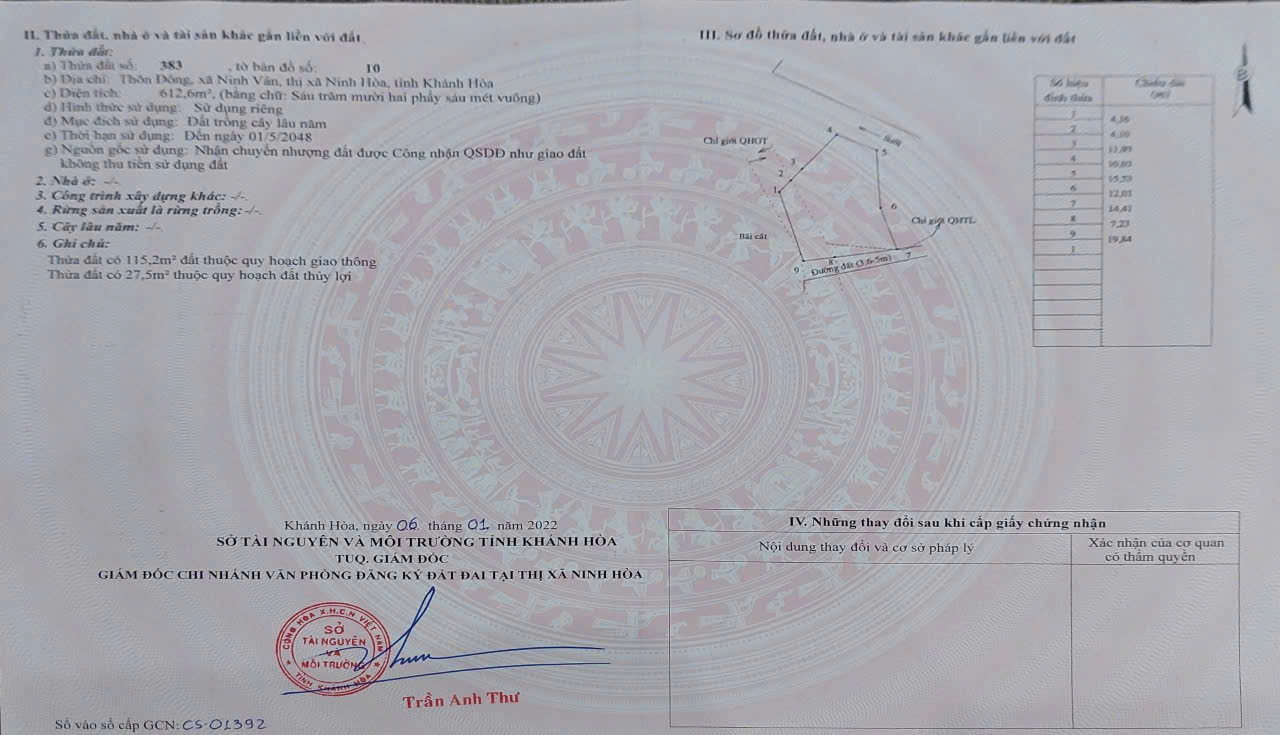 II. Thửa đất, nhà ở và tài sản khác gắn liền với đất
1. Thửa đất:
a) Thửa đất số: 383 , tờ bản đồ số: 10
b) Địa chỉ: Thôn Đông, xã Ninh Vân, thị xã Ninh Hòa, tỉnh Khánh Hòa
c) Diện tích: 612,6m², (bằng chữ: Sáu trăm mười hai phẩy sáu mét vuông)
d) Hình thức sử dụng: Sử dụng riêng
đ) Mục đích sử dụng: Đất trồng cây lâu năm
e) Thời hạn sử dụng: Đến ngày 01/5/2048
g) Nguồn gốc sử dụng: Nhận chuyển nhượng đất được Công nhận QSDĐ như giao đất
không thu tiền sử dụng đất
2. Nhà ở: -/-
3. Công trình xây dựng khác: -/-
4. Rừng sản xuất là rừng trồng: -/-
5. Cây lâu năm: -/-
6. Ghi chú:
Thửa đất có 115,2m² đất thuộc quy hoạch giao thông
Thửa đất có 27,5m² thuộc quy hoạch đất thủy lợi
Khánh Hòa, ngày 06 tháng 01 năm 2022
SỞ TÀI NGUYÊN VÀ MÔI TRƯỜNG TỈNH KHÁNH HÒA
TUQ. GIÁM ĐỐC
GIÁM ĐỐC CHI NHÁNH VĂN PHÒNG ĐĂNG KÝ ĐẤT ĐAI TẠI THỊ XÃ NINH HÒA
CỘNG HÒA X.H.C.N VIỆT NAM
SỞ
TÀI NGUYÊN
VÀ
MÔI TRƯỜNG
TỈNH KHÁNH HÒA
Trần Anh Thư
Số vào sổ cấp GCN: CS-01392
III. Sơ đồ thửa đất, nhà ở và tài sản khác gắn liền với đất
B
Chỉ giới QHGT
Suối
4
5
3
2
1
6
Chỉ giới QHTL
Bãi cát
9
8
7
Đường đất (3.6-5m)
Số hiệu
đỉnh thửa
Chiều dài
(m)
1
2
3
4
5
6
7
8
9
1
15,53
12,01
14,41
7,23
19,84
IV. Những thay đổi sau khi cấp giấy chứng nhận
Nội dung thay đổi và cơ sở pháp lý
Xác nhận của cơ quan
có thẩm quyền